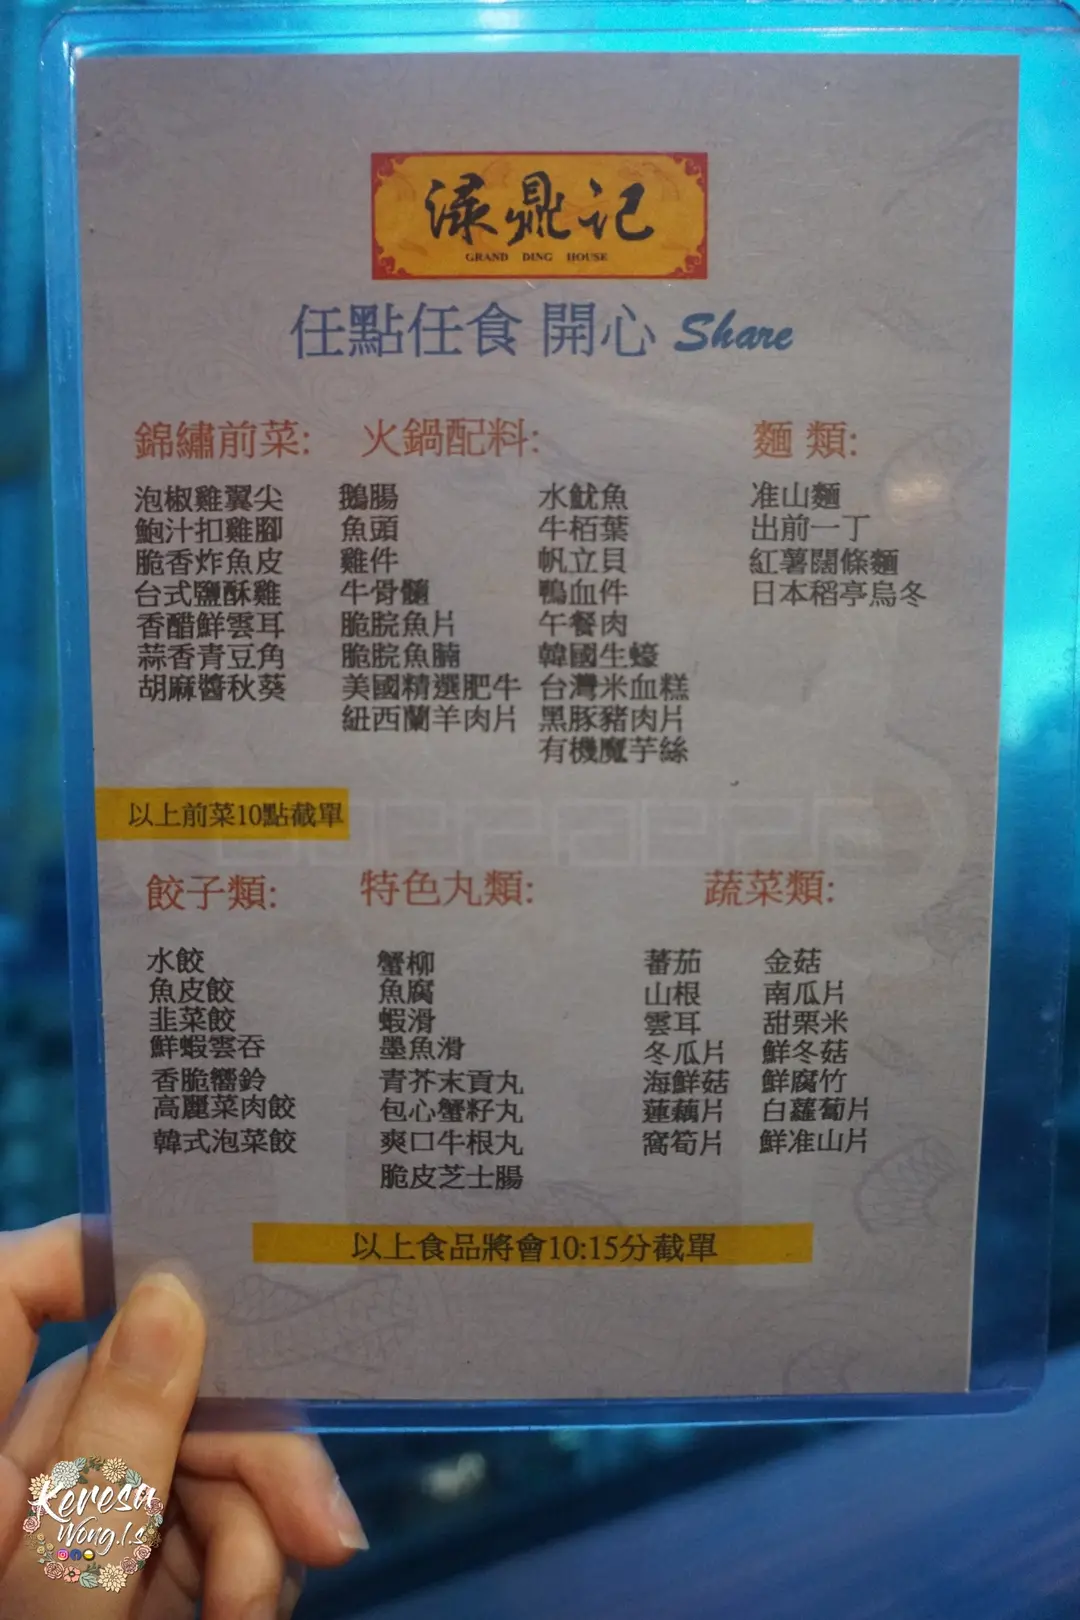 渌鼎记
GRAND DING HOUSE
任點任食 開心 Share
錦繡前菜:
泡椒雞翼尖
鮑汁扣雞腳
脆香炸魚皮
台式鹽酥雞
香醋鮮雲耳
蒜香青豆角
胡麻醬秋葵
以上前菜10點截單
火鍋配料:
鵝腸
魚頭
雞件
牛骨髓
脆脘魚片
脆脘魚腩
美國精選肥牛
紐西蘭羊肉片
水魷魚
牛栢葉
帆立貝
鴨血件
午餐肉
韓國生蠔
台灣米血糕
黑豚豬肉片
有機魔芋絲
麵 類:
准山麵
出前一丁
紅薯闊條麵
日本稻亭烏冬
餃子類:
水餃
魚皮餃
韭菜餃
鮮蝦雲吞
香脆響鈴
高麗菜肉餃
韓式泡菜餃
特色丸類:
蟹柳
魚腐
蝦滑
墨魚滑
青芥末貢丸
包心蟹籽丸
爽口牛根丸
脆皮芝士腸
蔬菜類:
蕃茄
山根
雲耳
冬瓜片
海鮮菇
蓮藕片
窩筍片
金菇
南瓜片
甜栗米
鮮冬菇
鮮腐竹
白蘿蔔片
鮮准山片
以上食品將會10:15分截單
Keresa
Wong.l.s